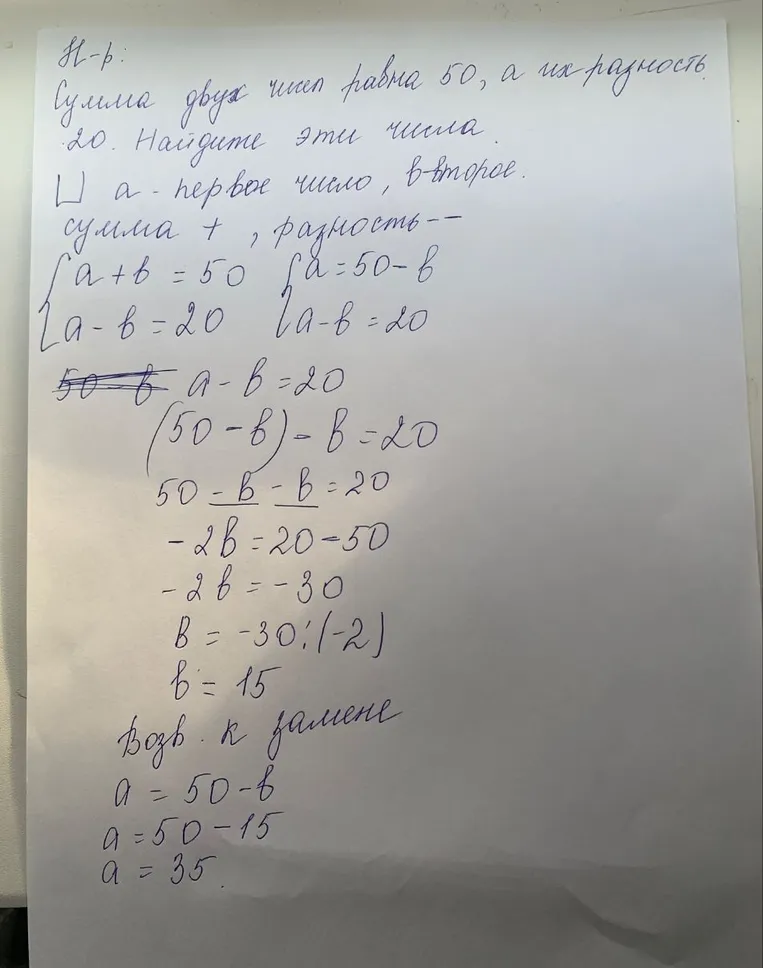 Н-р:
Сумма двух чисел равна 50, а их разность
20. Найдите эти числа.
⊔ а - первое число, в-второе.
сумма + , разность--
{ а + в = 50 { а = 50 - в
{ а - в = 20 { а - в = 20
50 - в а - в = 20
(50 - в) - в = 20
50 - в - в = 20
- 2в = 20 - 50
- 2в = - 30
в = -30:(-2)
в = 15
Возв. к замене
а = 50 - в
а = 50 - 15
а = 35.